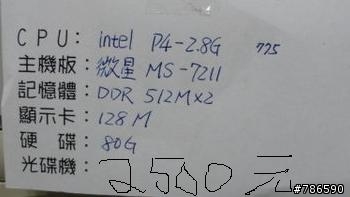 CPU: intel P4-2.8G 775
主機板: 微星 MS-7211
記憶體: DDR 512M×2
顯示卡: 128M
硬 碟: 80G
光碟機:
2500元
#786590